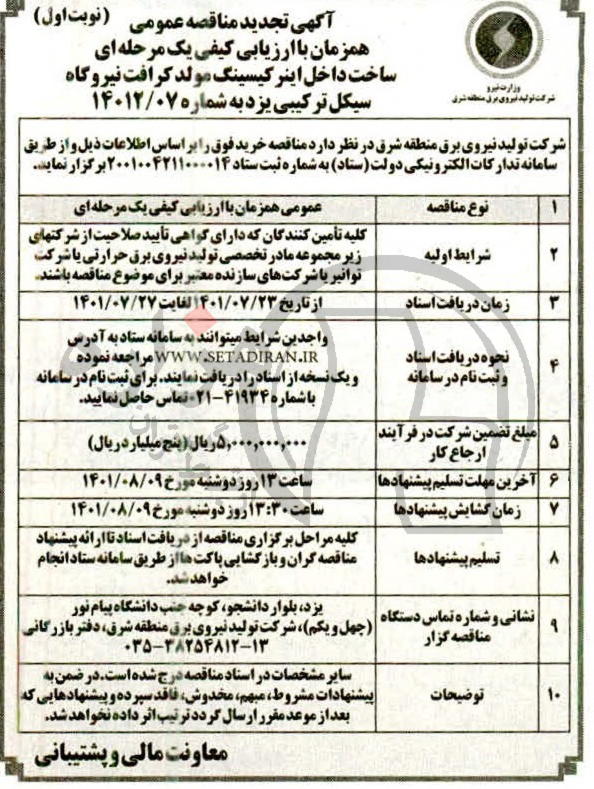 آگهی تجدید مناقصه عمومی (نوبت اول)
همزمان با ارزیابی کیفی یک مرحله ای
ساخت داخل اینر کیسینگ مولد کرافت نیروگاه
سیکل ترکیبی یزد به شماره ۱۴۰۱۲/۰۷
وزارت نیرو
شرکت تولید نیروی برق منطقه شرق
شرکت تولید نیروی برق منطقه شرق در نظر دارد مناقصه خرید فوق را بر اساس اطلاعات ذیل و از طریق
سامانه تدارکات الکترونیکی دولت (ستاد) به شماره ثبت ستاد ۲۰۰۱۰۰۴۲۱۱۰۰۰۰۱۴ برگزار نماید.
۱ نوع مناقصه عمومی همزمان با ارزیابی کیفی یک مرحله ای
۲ شرایط اولیه کلیه تأمین کنندگان که دارای گواهی تأیید صلاحیت از شرکتهای
زیر مجموعه مادر تخصصی تولید نیروی برق حرارتی یا شرکت
توانیر یا شرکت های سازنده معتبر برای موضوع مناقصه باشند.
۳ زمان دریافت اسناد از تاریخ ۱۴۰۱/۰۷/۲۳ لغایت ۱۴۰۱/۰۷/۲۷
۴ نحوه دریافت اسناد
و ثبت نام در سامانه
واجدین شرایط میتوانند به سامانه ستاد به آدرس
WWW.SETADIRAN.IR مراجعه نموده
و یک نسخه از اسناد را دریافت نمایند. برای ثبت نام در سامانه
با شماره ۴۱۹۳۴-۰۲۱ تماس حاصل نمایید.
۵ مبلغ تضمین شرکت در فرآیند
ارجاع کار
۵,۰۰۰,۰۰۰,۰۰۰ ریال (پنج میلیارد ریال)
۶ آخرین مهلت تسلیم پیشنهادها ساعت ۱۳ روز دوشنبه مورخ ۱۴۰۱/۰۸/۰۹
۷ زمان گشایش پیشنهادها ساعت ۱۳:۳۰ روز دوشنبه مورخ ۱۴۰۱/۰۸/۰۹
۸ تسلیم پیشنهادها کلیه مراحل برگزاری مناقصه از دریافت اسناد تا ارائه پیشنهاد
مناقصه گران و بازگشایی پاکت ها از طریق سامانه ستاد انجام
خواهد شد.
۹ نشانی و شماره تماس دستگاه
مناقصه گزار
یزد، بلوار دانشجو، کوچه جنب دانشگاه پیام نور
(چهل و یکم)، شرکت تولید نیروی برق منطقه شرق، دفتر بازرگانی
۰۳۵-۳۸۲۵۴۸۱۲-۱۳
۱۰ توضیحات سایر مشخصات در اسناد مناقصه درج شده است. در ضمن به
پیشنهادات مشروط، مبهم، مخدوش، فاقد سپرده و پیشنهادهایی که
بعد از موعد مقرر ارسال گردد ترتیب اثر داده نخواهد شد.
معاونت مالی و پشتیبانی